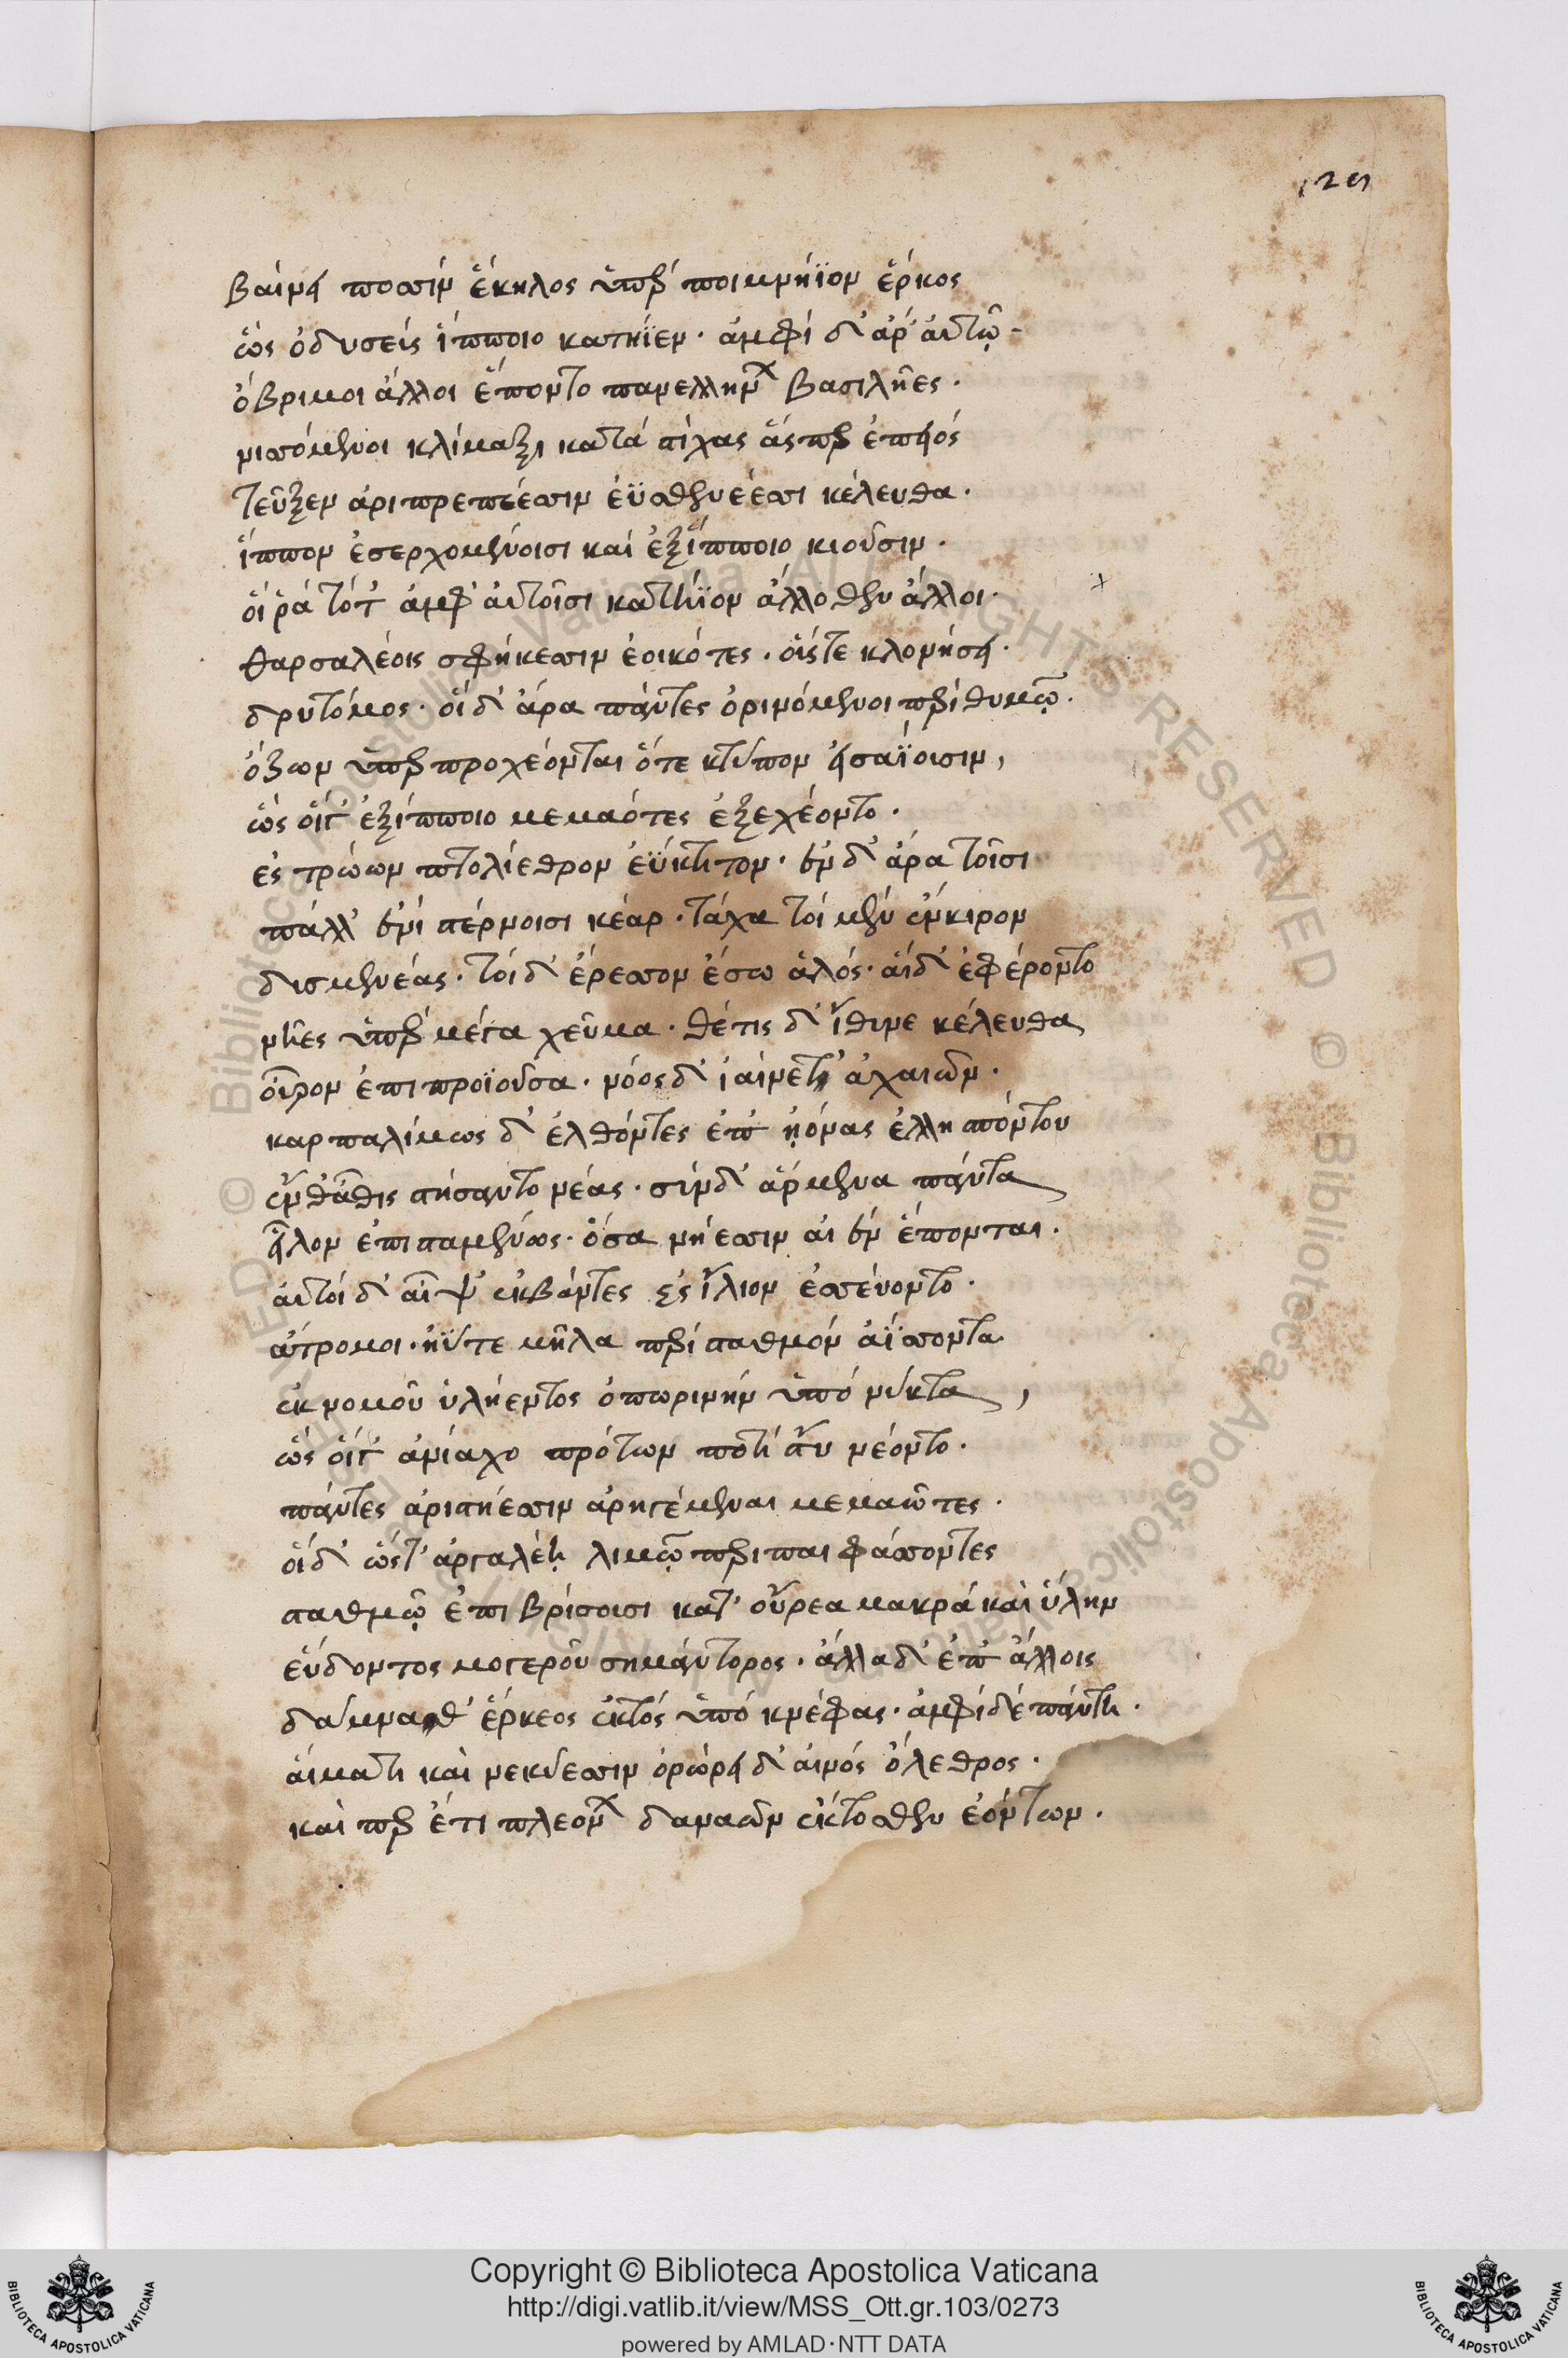 βαίνει ποσσὶν ἕκηλος ὑπὲρ ποιμνήϊον ἕρκος
ὣς ὀδυσεὺς ἵπποιο κατήϊεν· ἀμφὶ δ' ἄρ' αὐτῷ
ὄβριμοι ἄλλοι ἕποντο πανελλήνων βασιλῆες·
νισσόμενοι κλίμαξι κατὰ στίχας ἅς περ ἐπειός
τεῦξεν ἀριπρεπέεσσιν ἐϋσθενέεσσι κέλευθα·
ἵππον ἐσερχομένοισι καὶ ἐξ ἵπποιο κιοῦσιν·
οἵ ῥα τότ' ἀμφ' αὐτοῖσι κατήϊον ἄλλοθεν ἄλλοι·
θαρσαλέοις σφήκεσσιν ἐοικότες· οὕς τε κλονήσει·
δρυτόμος· οἳ δ' ἄρα πάντες ὀρινόμενοι περὶ θυμῷ·
ὄζων ὑπερπροχέονται ὅτε κτύπον εἰσαΐουσιν,
ὣς οἵγ' ἐξ ἵπποιο μεμαότες ἐξεχέοντο·
ἐς τρώων πτολίεθρον ἐΰκτιτον· ἐν δ' ἄρα τοῖσι
πάλλ' ἐνὶ στέρνοισι κέαρ· τάχα τοὶ μὲν ἔναιρον
δυσμενέας· τοὶ δ' ἔρεσσον ἔσω ἁλός· αἱ δ' ἐφέροντο
νῆες ὑπὲρ μέγα χεῦμα· θέτις δ' ἴθυνε κέλευθα
οὖρον ἐπιπροϊοῦσα· νόος δ' ἰαίνετ' ἀχαιῶν·
καρπαλίμως δ' ἐλθόντες ἐπ' ᾐόνας ἑλλησπόντου
ἔνθ' αὖθις στήσαντο νέας· σὺν δ' ἄρμενα πάντα
εἷλον ἐπισταμένως· ὅσα νήεσσιν αἰὲν ἕπονται·
αὐτοὶ δ' αἶψ' ἐκβάντες ἐς ἴλιον ἐσσεύοντο·
ἄτρομοι· ἠΰτε μῆλα περὶ σταθμὸν ἀΐσσοντα
ἐκ νομοῦ ὑλήεντος ὀπωρινὴν ὑπὸ νύκτα,
ὣς οἵγ' ἀνίαχοι τρώων ποτὶ ἄστυ νέοντο·
πάντες ἀριστήεσσιν ἀρηγέμεναι μεμαῶτες·
οἱ δ' ὥς τ' ἀργαλέῃ λιμῷ περιπαιφάσσοντες
σταθμῷ ἐπιβρίσωσι κατ' οὔρεα μακρὰ καὶ ὕλην
εὕδοντος μογεροῦ σημάντορος· ἄλλα δ' ἐπ' ἄλλοις
δάμναθ' ἕρκεος ἐκτὸς ὑπὸ κνέφας· ἀμφὶ δὲ πάντῃ·
αἵματι καὶ νεκύεσσιν ὀρώρει δ' αἰνὸς ὄλεθρος·
καί περ ἔτι πλεόνων δαναῶν ἔκτοσθεν ἐόντων·
Copyright © Biblioteca Apostolica Vaticana
http://digi.vatlib.it/view/MSS_Ott.gr.103/0273
powered by AMLAD·NTT DATA
BIBLIOTECA APOSTOLICA VATICANA
BIBLIOTECA APOSTOLICA VATICANA